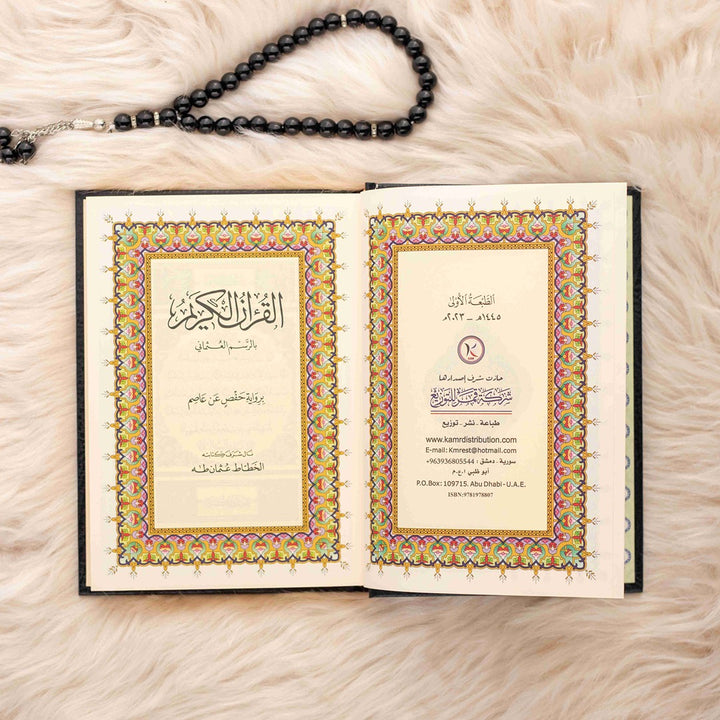 القرآن الكريم
بالرسم العثماني
برواية حفص عن عاصم
نال شرف كتابته
الخطاط عثمان طه
الطبعة الأولى
١٤٤٥هـ - ٢٠٢٣م
حازت شرف إصدارها
شركة قمر للتوزيع
طباعة - نشر - توزيع
www.kamrdistribution.com
E-mail: Kmrest@hotmail.com
سورية - دمشق : 963936805544+
أبو ظبي ا.ع.م
P.O.Box: 109715. Abu Dhabi - U.A.E.
ISBN:9781978807